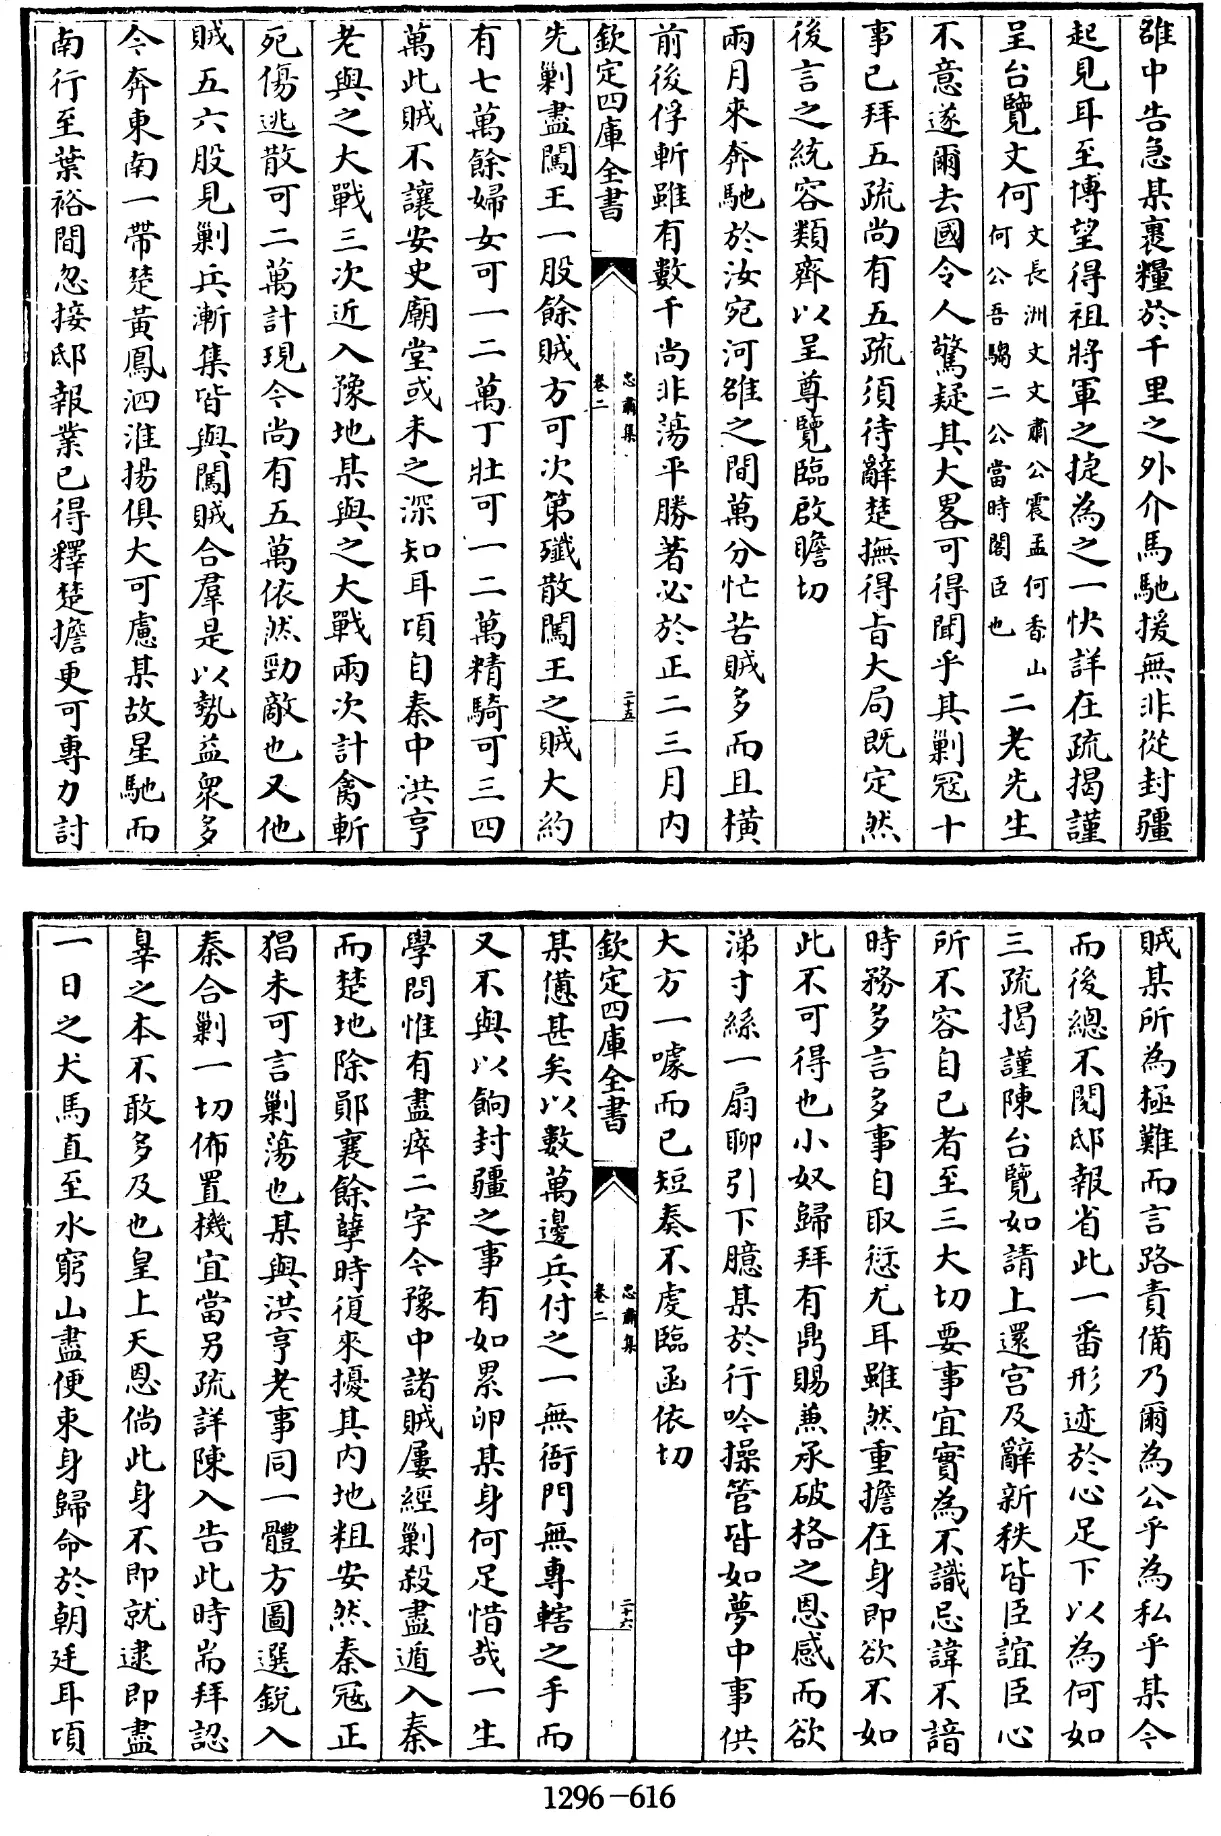 雒中告急某裹糧於千里之外介馬馳援無非從封疆
起見耳至博望得祖將軍之捷為之一快詳在疏揭謹
呈台覽文何文長洲文文肅公震孟何香山何公吾騶二公當時閣臣也二老先生
不意遂爾去國令人驚疑其大畧可得聞乎其剿寇十
事已拜五疏尚有五疏須待辭楚撫得旨大局既定然
後言之統容類齊以呈尊覽臨啟瞻切
兩月來奔馳於汝宛河雒之間萬分忙苦賊多而且橫
前後俘斬雖有數千尚非蕩平勝著必於正二三月內
欽定四庫全書
忠肅集
卷二
二十五
先剿盡闖王一股餘賊方可次第殲散闖王之賊大約
有七萬餘婦女可一二萬丁壯可一二萬精騎可三四
萬此賊不讓安史廟堂或未之深知耳項自秦中洪亨
老與之大戰三次近入豫地某與之大戰兩次計禽斬
死傷逃散可二萬計現今尚有五萬依然勁敵也又他
賊五六股見剿兵漸集皆與闖賊合羣是以勢益衆多
今奔東南一帶楚黃鳳泗淮揚俱大可慮某故星馳而
南行至葉裕間忽接邸報業已得釋楚擔更可專力討
賊某所為極難而言路責備乃爾為公乎為私乎某今
而後總不閱邸報省此一番形迹於心足下以為何如
三疏揭謹陳台覽如請上還宮及辭新秩皆臣誼臣心
所不容自已者至三大切要事宜實為不識忌諱不諳
時務多言多事自取愆尤耳雖然重擔在身即欲不如
此不可得也小奴歸拜有鼎賜兼承破格之恩感而欲
涕寸絲一扇聊引下臆某於行吟操管皆如夢中事供
大方一噱而已短奏不虔臨函依切
欽定四庫全書
忠肅集
卷二
二十六
某憊甚矣以數萬邊兵付之一無衙門無專轄之手而
又不與以餉封疆之事有如累卵某身何足惜哉一生
學問惟有盡瘁二字今豫中諸賊屢經剿殺盡遁入秦
而楚地除鄖襄餘孽時復來擾其內地粗安然秦寇正
猖未可言剿蕩也某與洪亨老事同一體方圖選銳入
秦合剿一切佈置機宜當另疏詳陳入告此時耑拜認
辠之本不敢多及也皇上天恩倘此身不即就逮即盡
一日之犬馬直至水窮山盡便束身歸命於朝廷耳項
1296-616